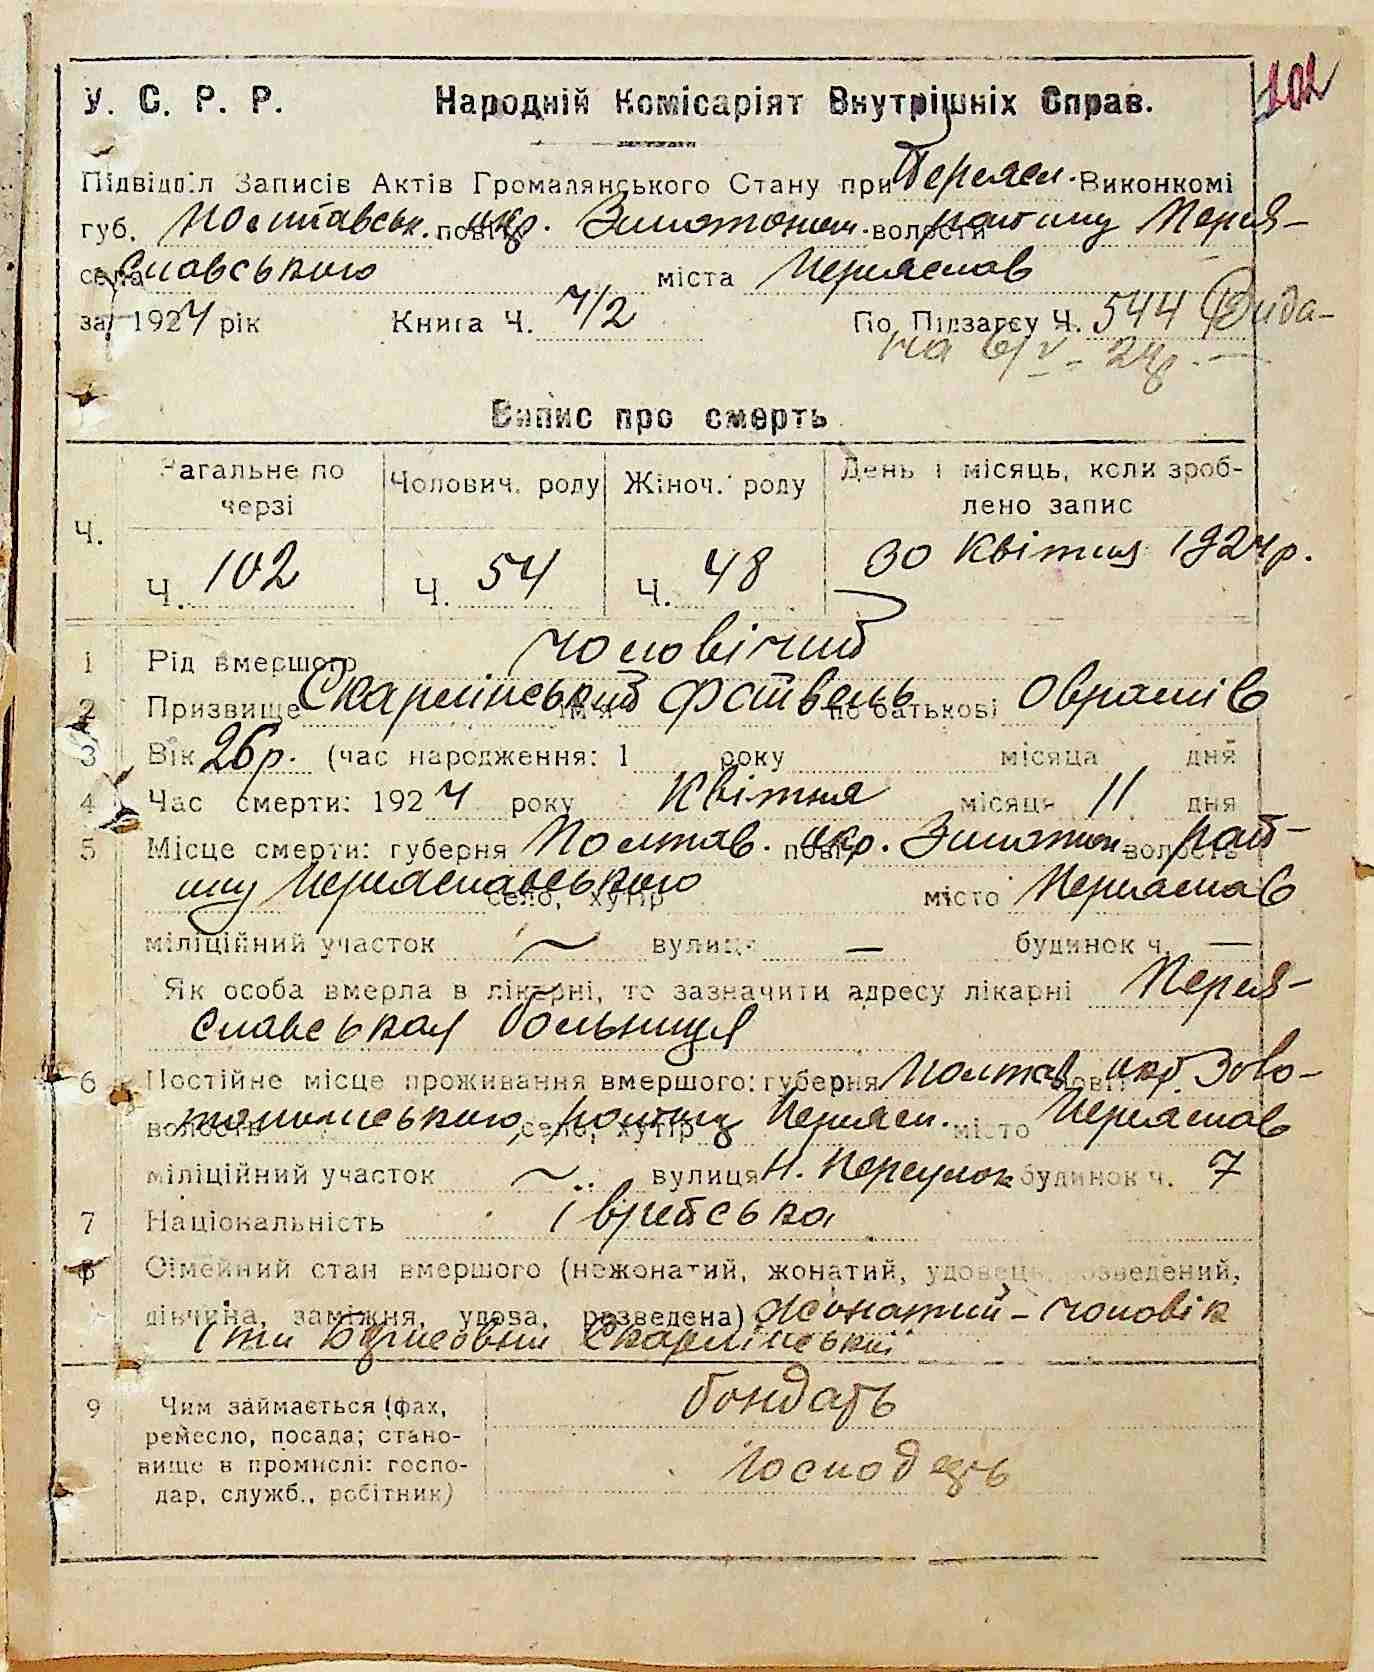 102
У. С. Р. Р. Народній Комісаріят Внутрішніх Справ.
Підвідділ Записів Актів Громадянського Стану при Переясл. Виконкомі
губ. Полтавськ. повіт окр. Золотонош. волости району Перея-
села славського міста Переяслав
за 1924 рік Книга Ч. 7/2 По Підзагсу Ч. 544 Вида-
на 6/V - 24р. —
Випис про смерть
Ч. Загальне по черзі Чолович. роду Жіноч. роду День і місяць, коли зроб-
лено запис
Ч. 102 Ч. 54 Ч. 48 30 Квітня 1924р.
1 Рід вмершого чоловічий
2 Призвище Скарлінський ім'я по батькові Оврамів
3 Вік 26р. (час народження: 1 року місяца дня
4 Час смерти: 1924 року Квітня місяця 11 дня
5 Місце смерти: губерня Полтав. повіт окр. Золотон. волость рай-
ону Переяславського село, хутір місто Переяслав
міліційний участок ~ вулиця — будинок ч. —
Як особа вмерла в лікарні, то зазначити адресу лікарні Перея-
славськая больниця
6 Постійне місце проживання вмершого: губерня Полтав повіт окр. Золо-
волость тоношського, село, хутір району Переясл. місто Переяслав
міліційний участок ~ вулиця Н. Переулок будинок ч. 7
7 Національність Івреїська
8 Сімейний стан вмершого (нежонатий, жонатий, удовець, розведений,
дівчина, заміжня, удова, розведена) Жонатий - чоловік
Скарлінськиї
9 Чим займається (фах, бондарь
ремесло, посада; стано-
вище в промислі: госпо- Господарь
дар, служб., робітник)